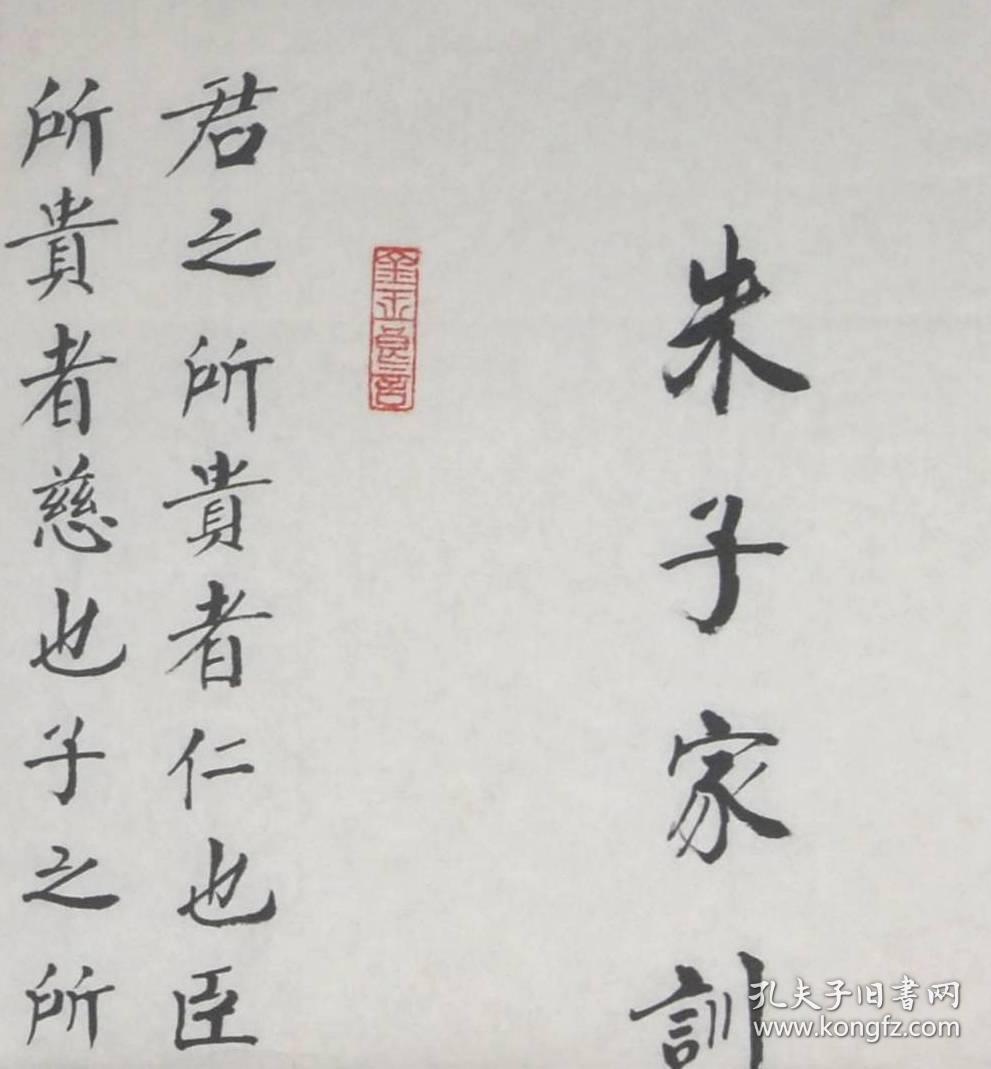 朱子家訓
金玉良言
君之所貴者仁也臣
所貴者慈也子之所
孔夫子旧書网
www.kongfz.com